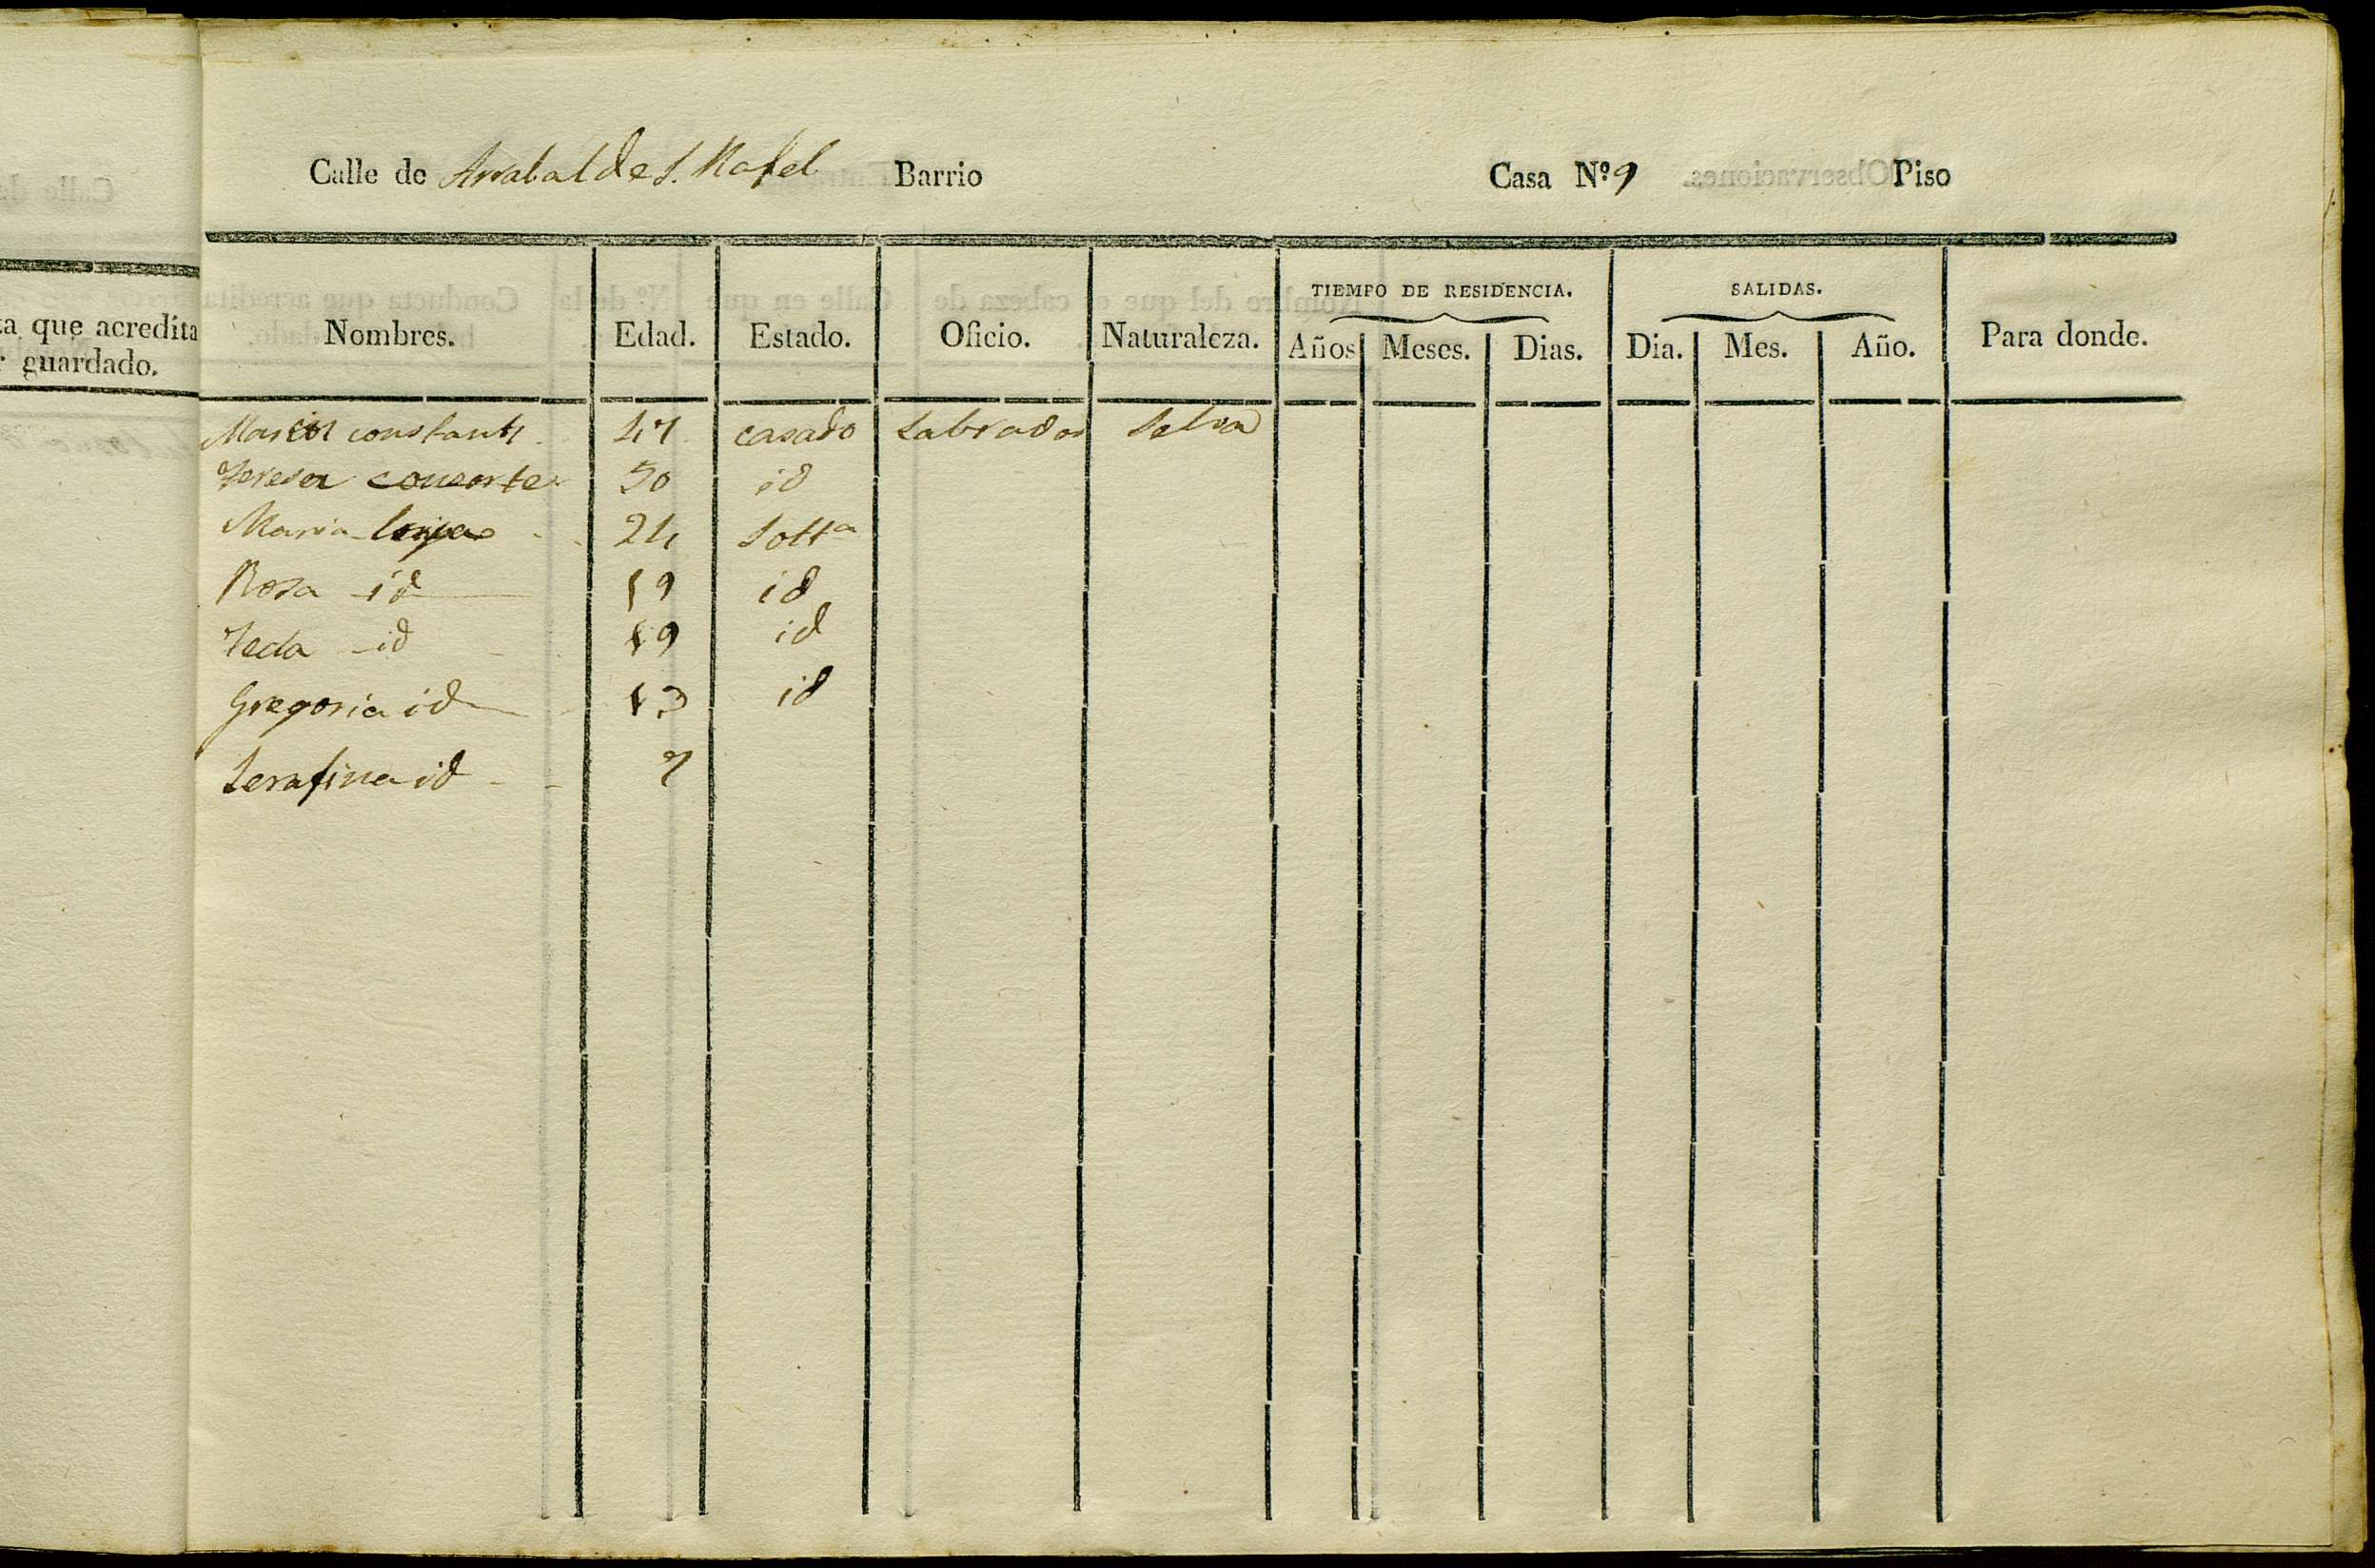 Calle de Arrabal de S. Rafel Barrio Casa Nº 9 Piso
ta que acredita
r guardado.
TIEMPO DE RESIDENCIA. SALIDAS.
Nombres. Edad. Estado. Oficio. Naturaleza. Años Meses. Dias. Dia. Mes. Año. Para donde.
constanti 47 casado Labrador Selva
Teresa consorte 50 id
Maria 24 Soltª
Rosa id 19 id
Tecla id 19 id
Gregoria id 13 id
Serafina id 7